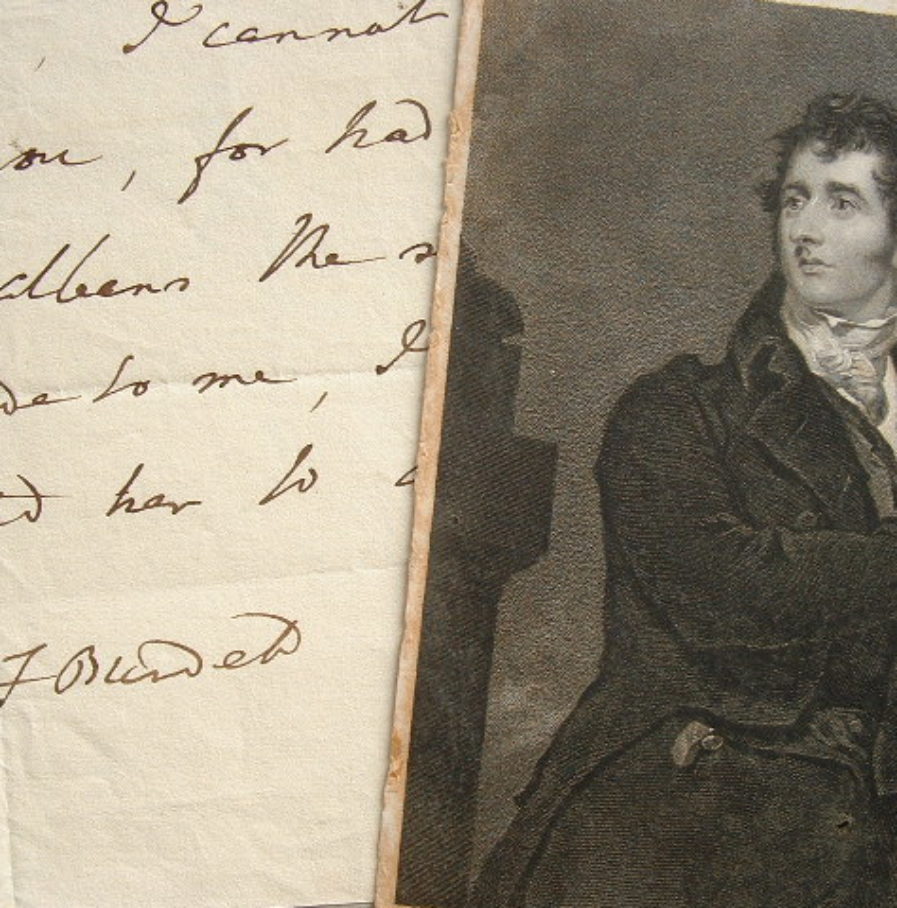 , I cannot
you, for had
albans the s
de to me, I
ed her to a
F Burdett